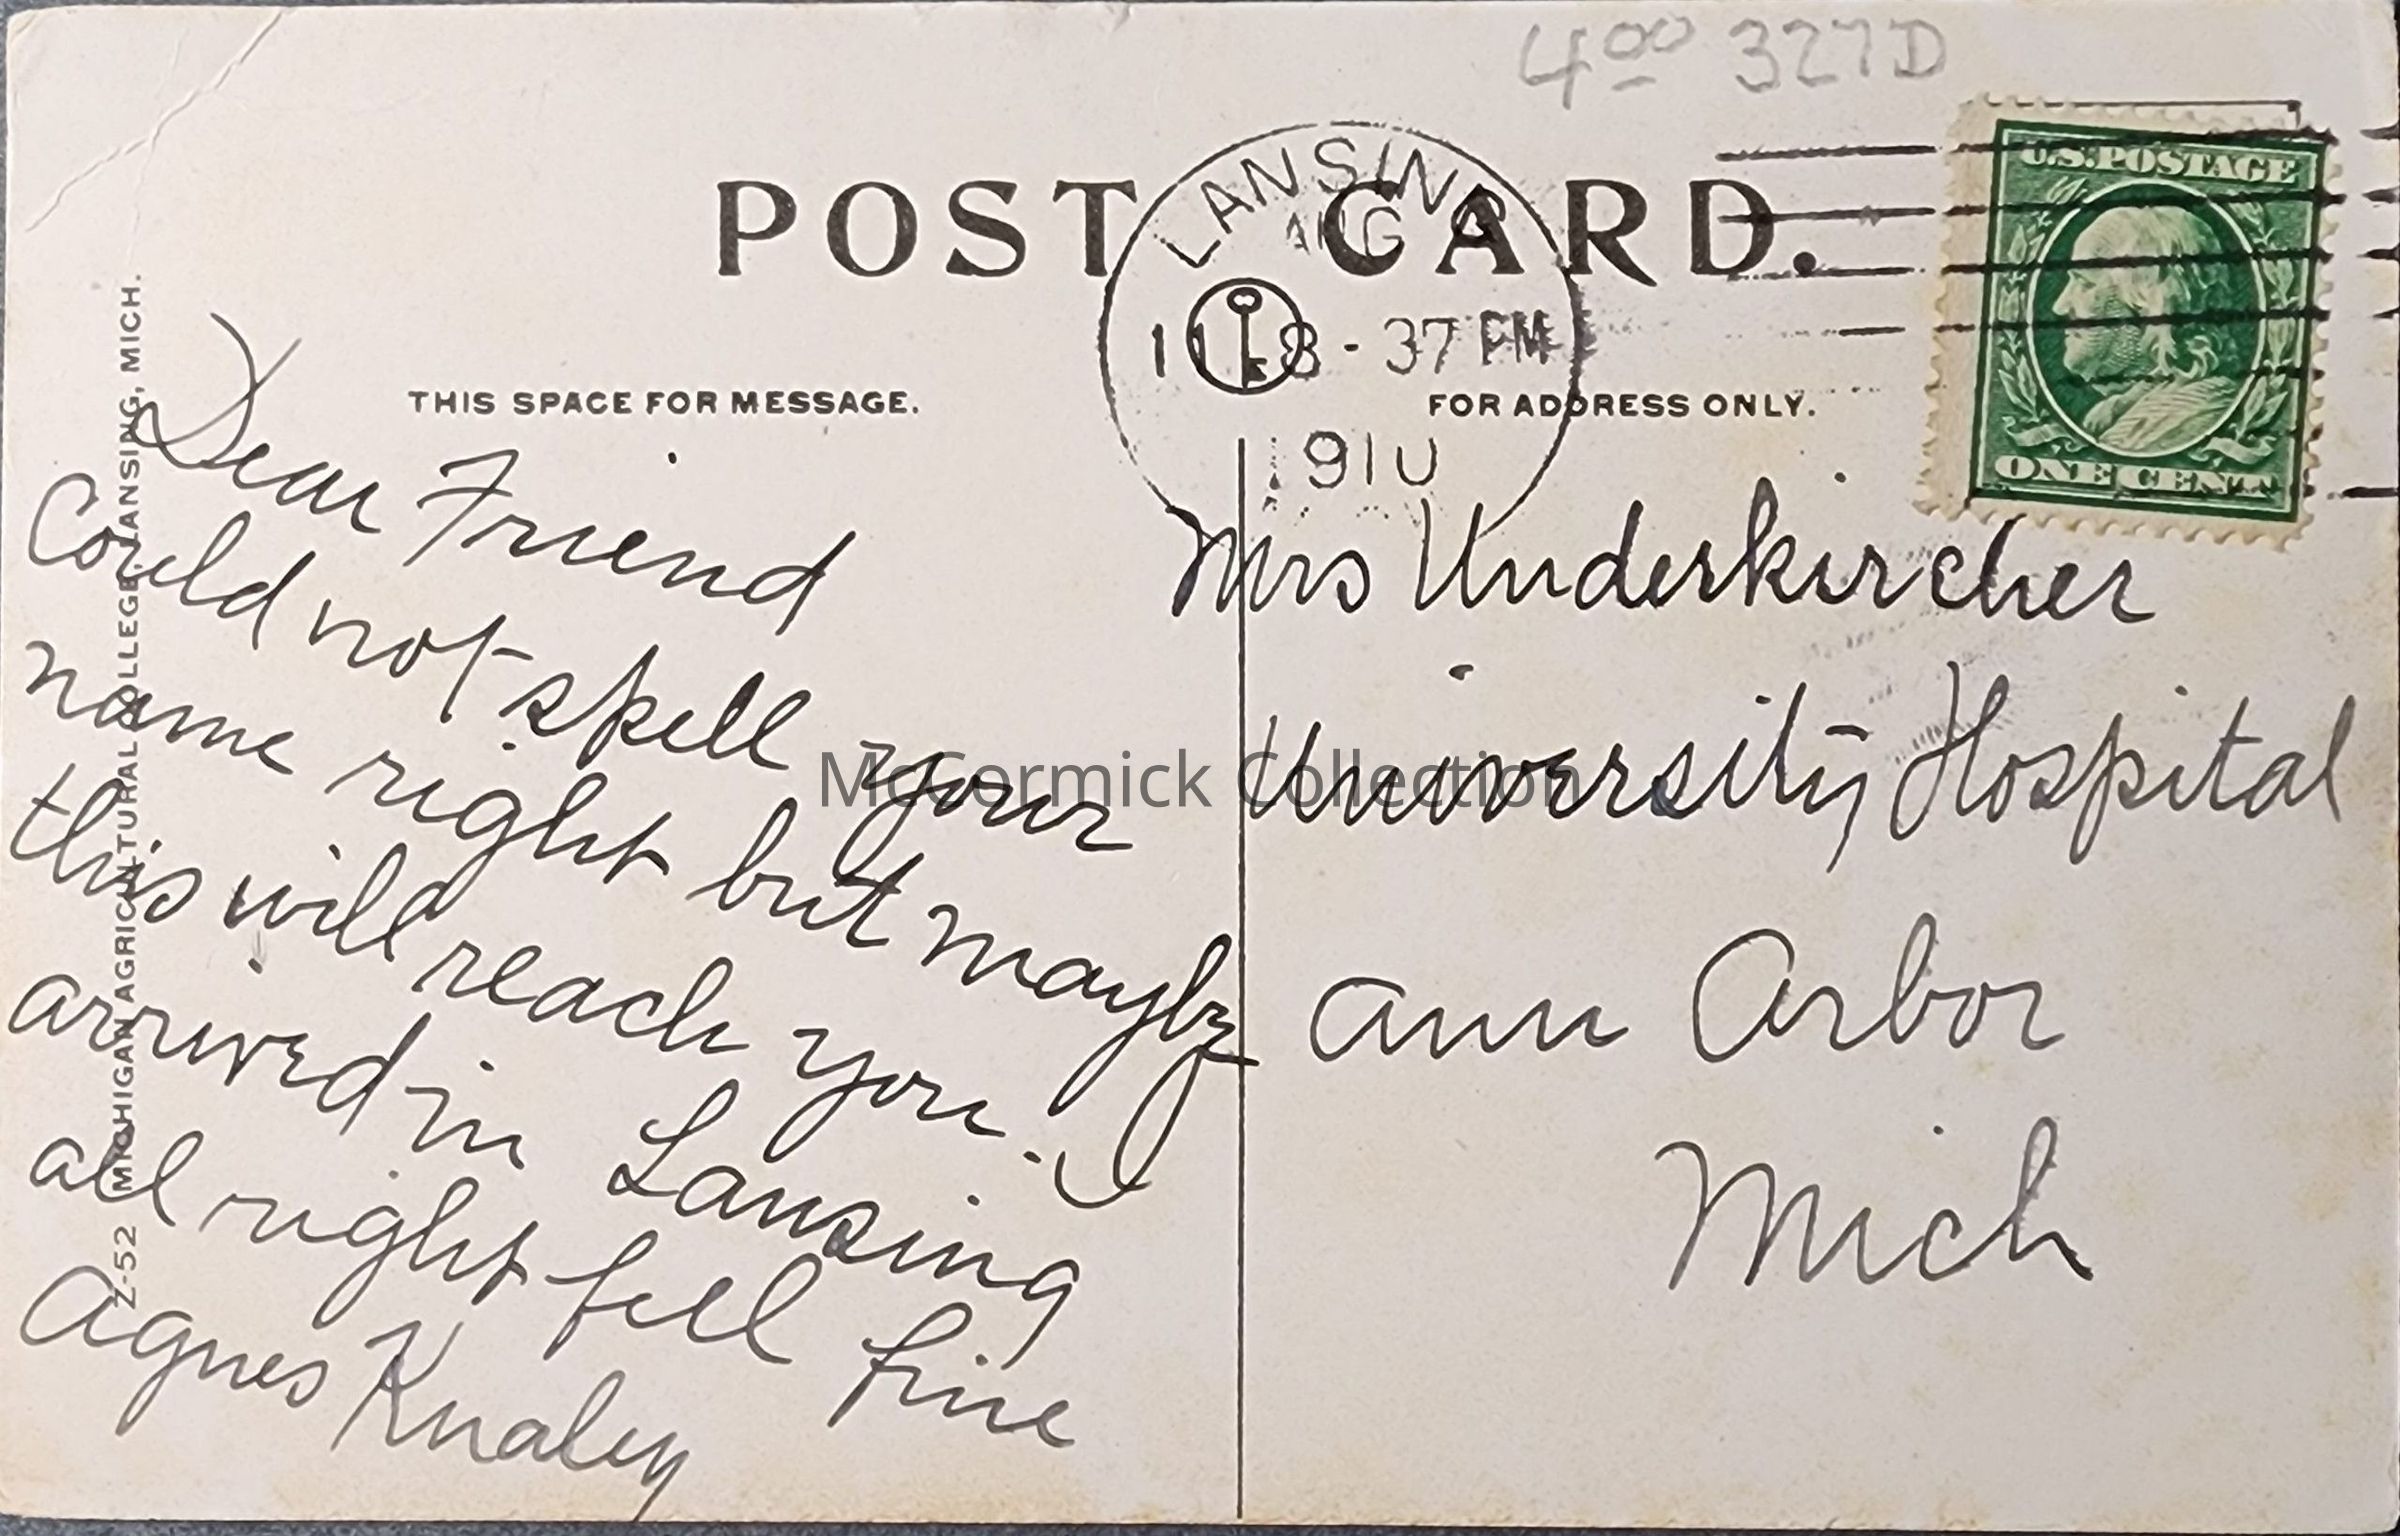 4 00 327D
POST CARD.
LANSING
AUG
11 8-37 PM
1910
U.S. POSTAGE
ONE CENT
THIS SPACE FOR MESSAGE.
FOR ADDRESS ONLY.
Z-52 MICHIGAN AGRICULTURAL COLLEGE. LANSING, MICH.
Dear Friend
Could not spell your
name right but maybe
this will reach you. I
arrived in Lansing
all right feel fine
Agnes Knaley
Mrs Underkircher
University Hospital
Ann Arbor
Mich
McCormick Collection